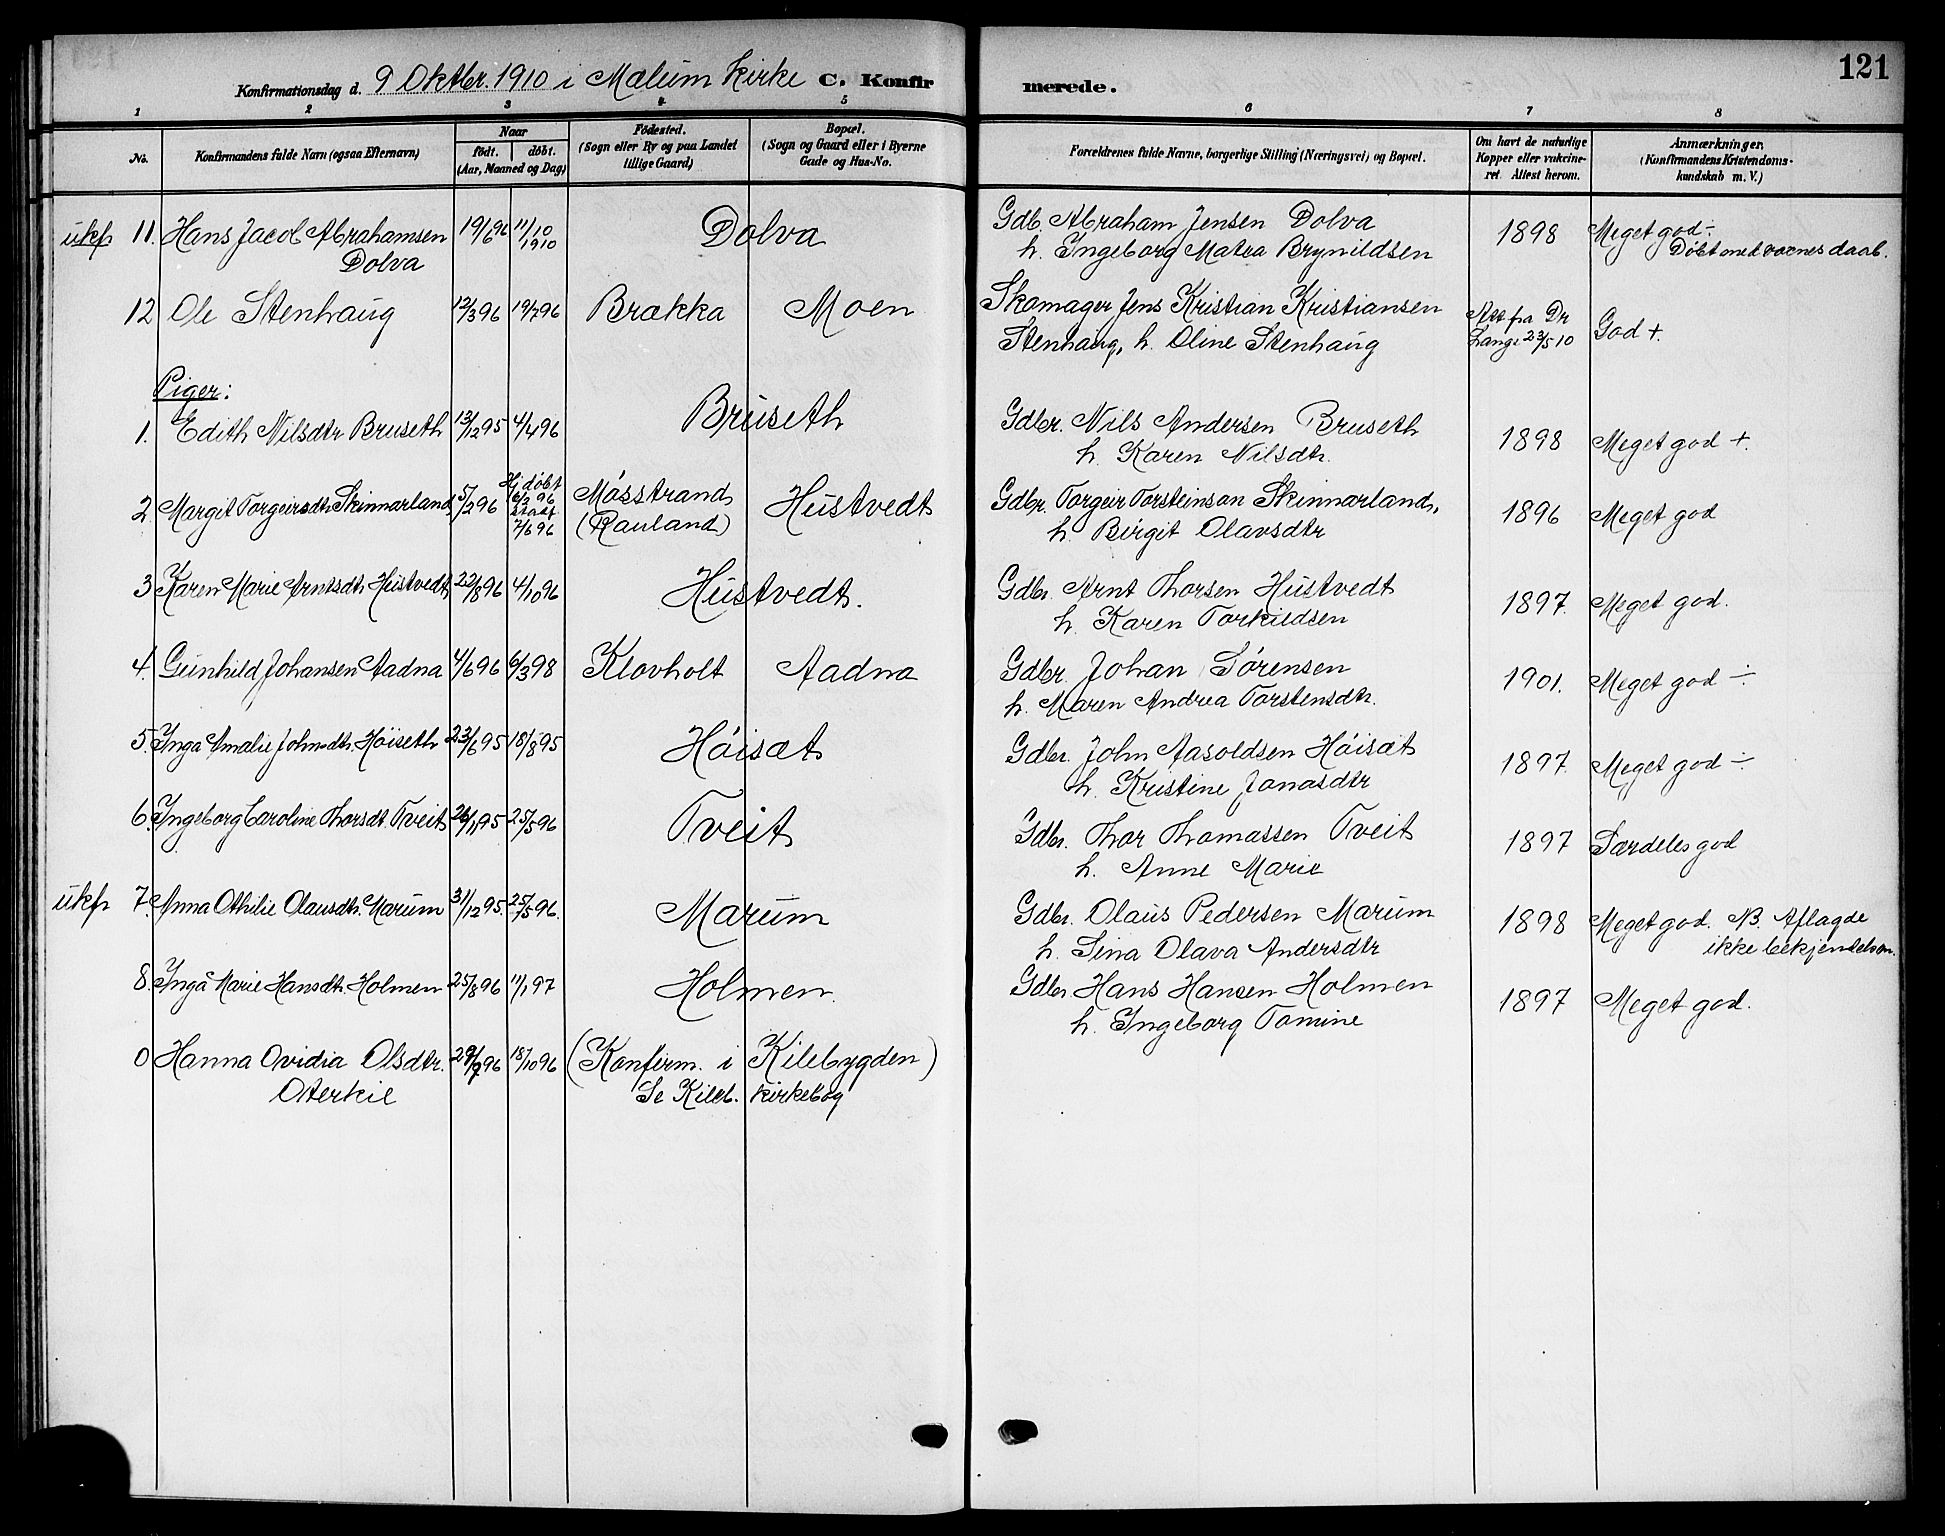 121
Konfirmationsdag d. 9 Oktbr. 1910 i Mælum Kirke C. Konfirmerede.
1 2 3 4 5 6 7 8
No. Konfirmandens fulde Navn (ogsaa Efternavn) Naar født. døbt. (Aar, Maaned og Dag) Fødested. (Sogn eller By og paa Landet tillige Gaard) Bopæl. (Sogn og Gaard eller i Byerne Gade og Hus-No. Forældrenes fulde Navne, borgerlige Stilling (Næringsvei) og Bopæl. Om havt de naturlige Kopper eller vakcineret. Attest herom. Anmærkninger. (Konfirmandens Kristendomskundskab m. V.)
ukp 11. Hans Jacob Abrahamsen 19/6 96 11/10 1910 Dolva Gdb. Abraham Jensen Dolva 1898 Meget god ÷
Dolva h. Ingeborg Matea Brynildsen Døbt med voxnes daab.
12 Ole Stenhaug 12/3 96 19/7 96 Brækka Moen Skomager Jens Kristian Kristiansen Att fra Dr God +
Stenhaug, h. Oline Stenhaug Lange 23/5 10
Piger:
1. Edith Nilsdtr Bruseth 13/12 95 4/4 96 Bruseth Gdbr. Nils Andersen Bruseth 1898 Meget god +
h. Karen Nilsdtr.
2. Margit Torgeirsdtr Skinnarland 5/2 96 Hj. døbt 6/2 96 Stadf 7/6 96 Møsstrand (Rauland) Hustvedt Gdbr. Torgeir Torsteinson Skinnarland, 1896 Meget god
h. Birgit Olavsdtr
3 Karen Marie Arntsdtr. Hustvedt 22/8 96 4/10 96 Hustvedt. Gdbr. Arnt Thorsen Hustvedt 1897. Meget god.
h. Karen Torkildsen
4. Gunhild Johansen Aadna 4/6 96 6/3 98 Klovholt Aadna Gdbr. Johan Sørensen 1901. Meget god ÷
h. Maren Andrea Torstensdtr.
5. Inga Amalie Johnsdtr. Høiseth 23/6 95 18/8 95 Høisæt Gdbr. John Aasoldsen Høisæt 1897. Meget god ÷
h. Kristine Jonasdtr
6. Ingeborg Caroline Thorsdt. Tveit 26/11 95 25/5 96 Tveit Gdbr. Thor Thomassen Tveit 1897 Særdeles god
h. Anne Marie
ukp 7. Anna Othilie Olausdtr. Marum 31/12 95. 25/5 96. Marum Gdbr. Olaus Pedersen Marum 1898 Meget god. NB. Aflagde
h. Sina Olava Andersdtr ikke bekjendelsen.
8. Inga Marie Hansdtr. Holmen 25/8 96 11/1 97 Holmen. Gdbr Hans Hansen Holmen 1897 Meget god.
h. Ingeborg Tomine
0 Hanna Ovidia Olsdtr. 29/7 96 18/10 96 (Konfirm. i Kilebygden)
Oterkil Se Kileb. kirkebog